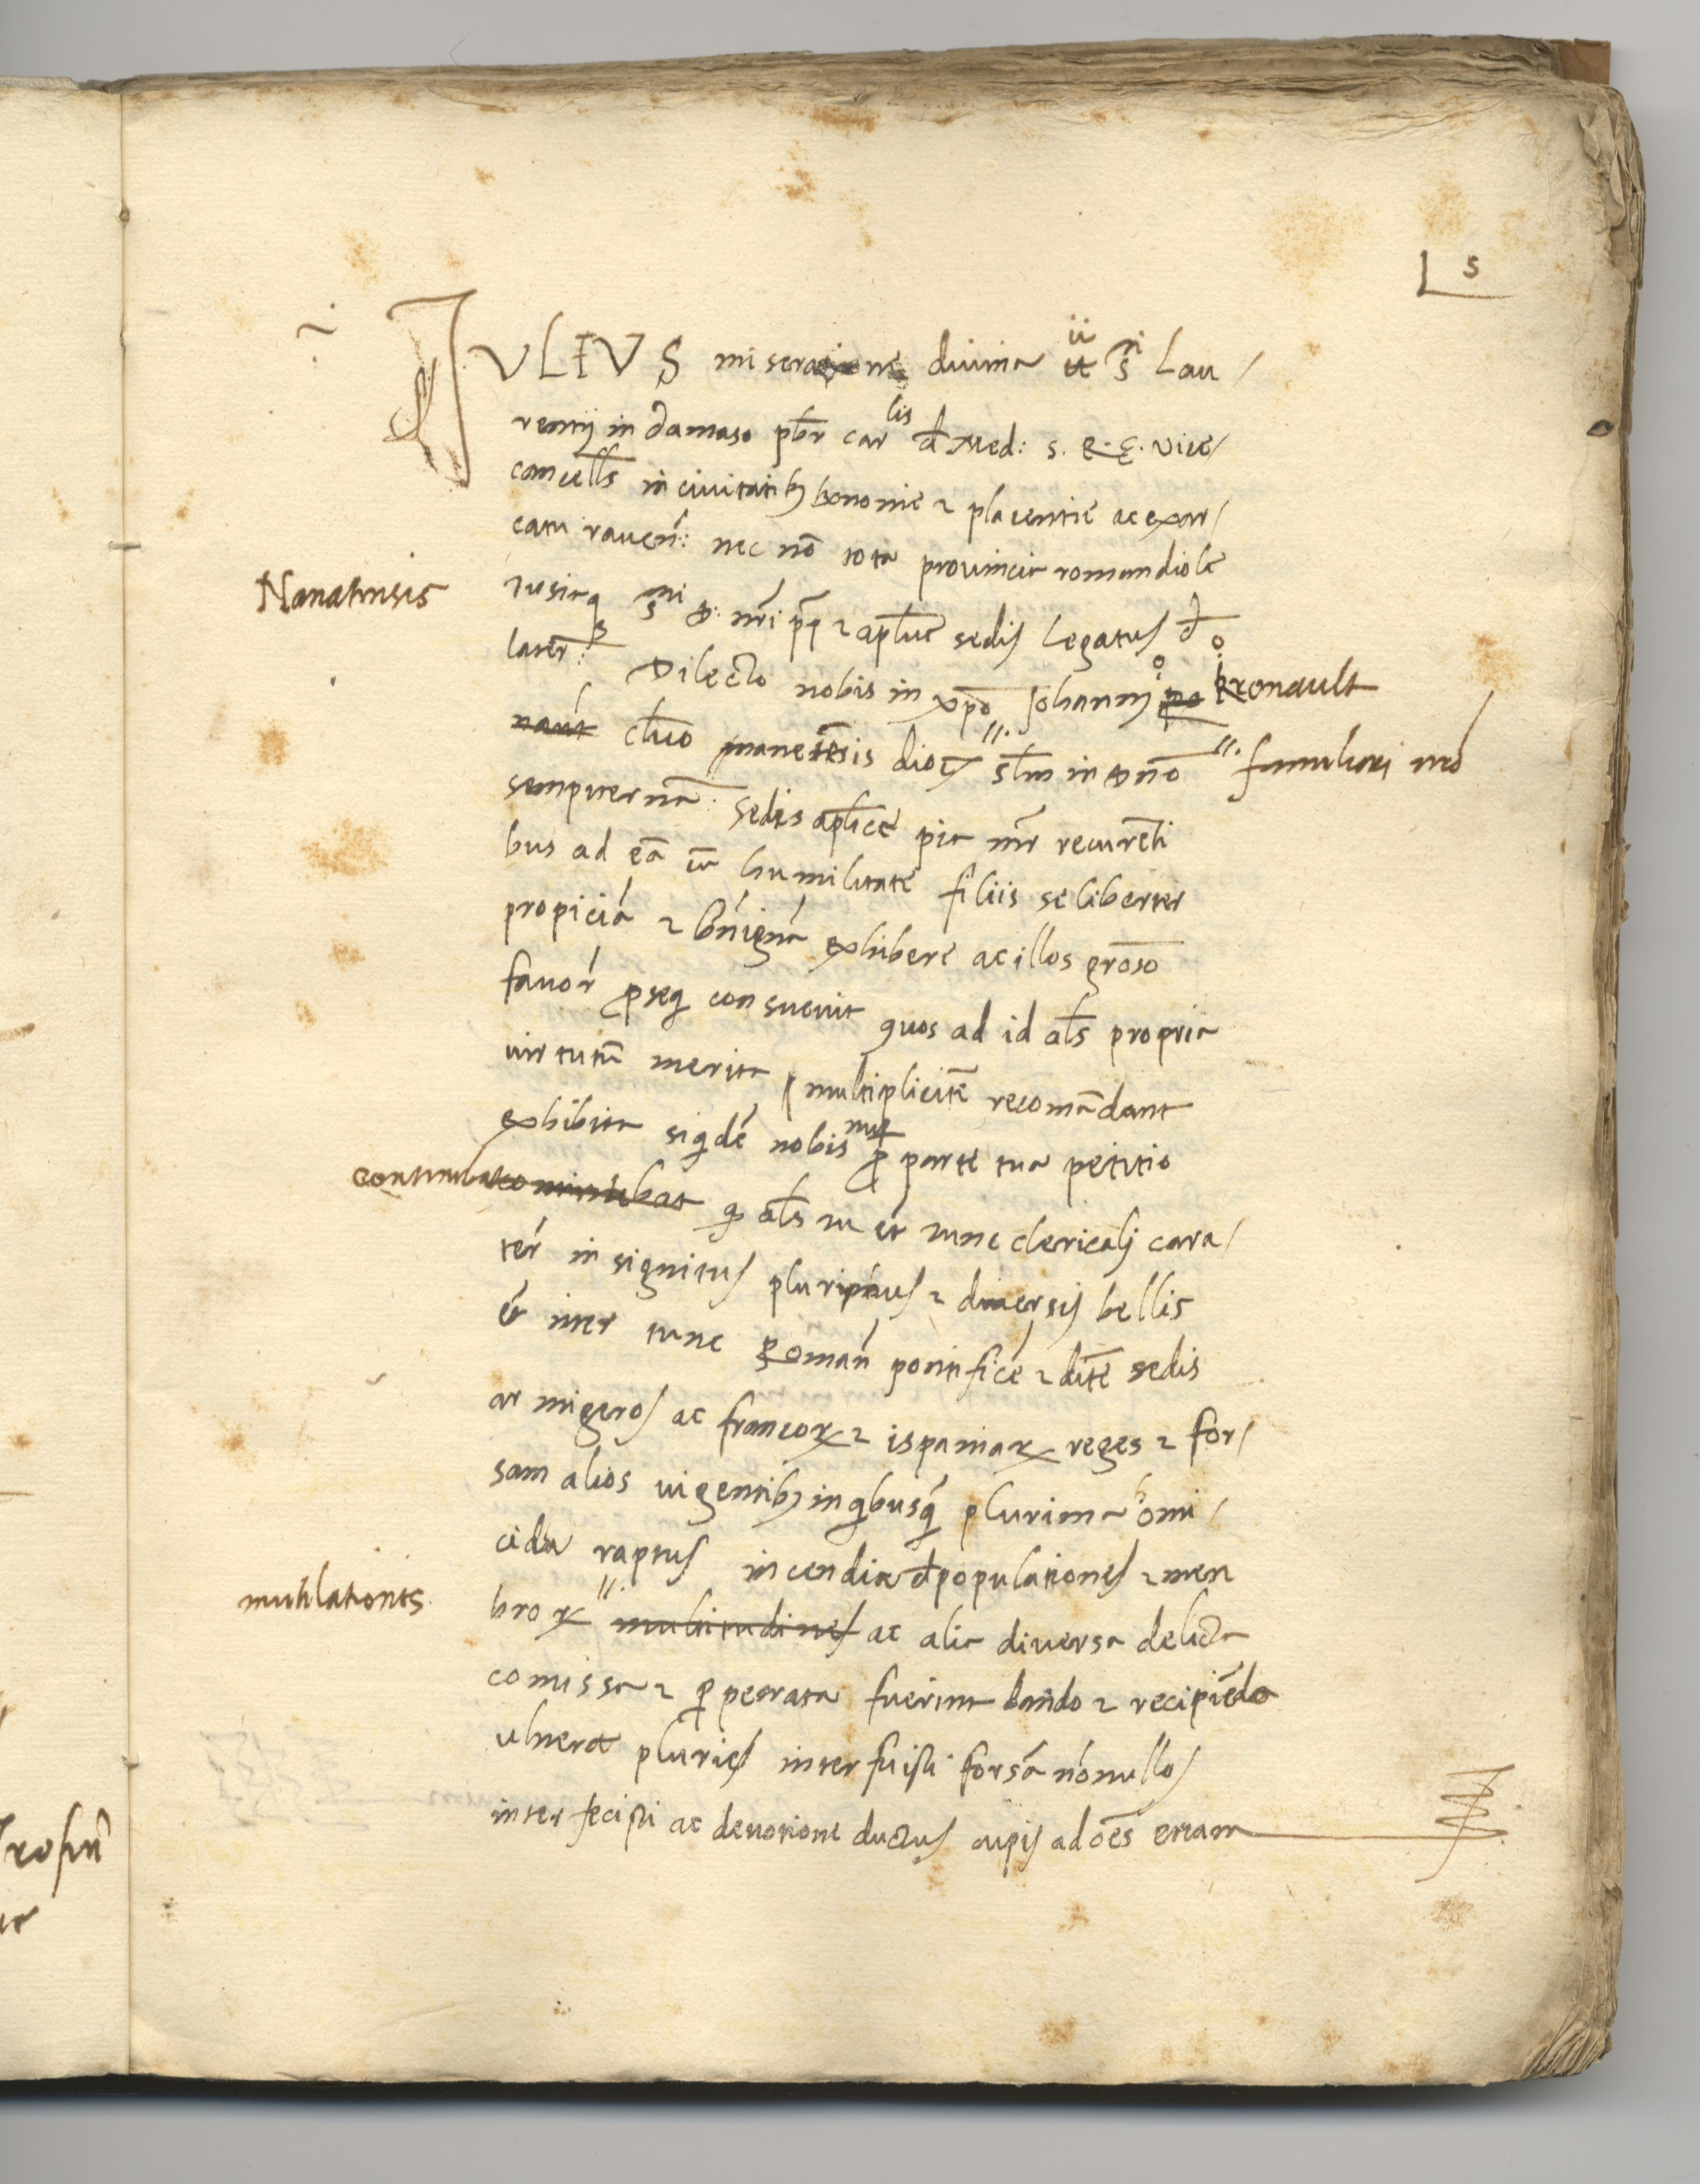 5
JULIUS miseratione divina tt ii s ti Lau/
rentij in damaso pbr car lis d Med: s. R. E. vice/
cancells in civitatib bononie & placentie ac exar/
catu raven: nec nō tota provincia romandiole
Nanatensis
s mi d: nri pp & aplice sedis Legatus d
later: Dilecto nobis in xpo Johannj Renault
naut clico nanetēsis dioc slm in dno familiari nro
sempiterna: Sedis aplice pia mr recurrēti
bus ad eā cū humilitate filiis se libenter
propiciā & bnignā exhibere ac illos groso
favor proseq consuevit quos ad id als propria
virtutū merita multiplicitē recomēdant
exhibita siqdē nobis nup pro parte tua petitio
continebat continebat q als tu et tunc clericalj cara/
ter insignitus pluribus & diversis bellis
et inter tunc Roman pontificē & dicte sedis
armigeros ac francor & ispaniar reges & for/
sam alios vigentib in qbusq plurima homi/
cidia raptus incendia depopulationes & men
mutilationes
bror multitudines ac alia diversa delicta
comissa & perpetrata fuerunt dando & recipiēdo
vlnera pluries interfuisti forsā nonullos
interfecisti ac devotione ductus cupis ad oēs etiam